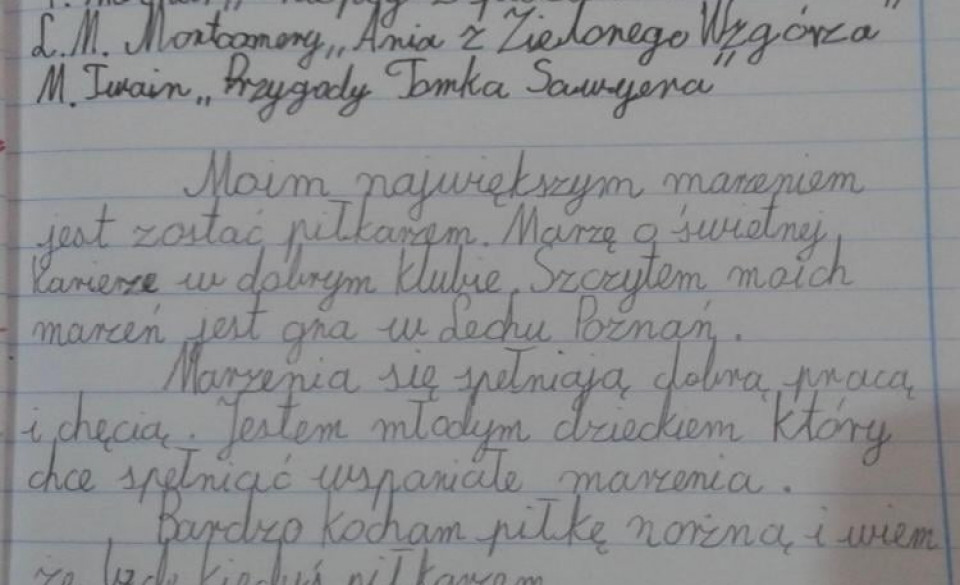 L.M. Montgomery „Ania z Zielonego Wzgórza"
M. Twain „Przygody Tomka Sawyera"
Moim największym marzeniem
jest zostać piłkarzem. Marzę o świetnej
karierze w dobrym klubie. Szczytem moich
marzeń jest gra w Lechu Poznań.
Marzenia się spełniają dobrą pracą
i chęcią. Jestem młodym dzieckiem który
chce spełniać wspaniałe marzenia.
Bardzo kocham piłkę nożną i wiem
że będę kiedyś piłkarzem